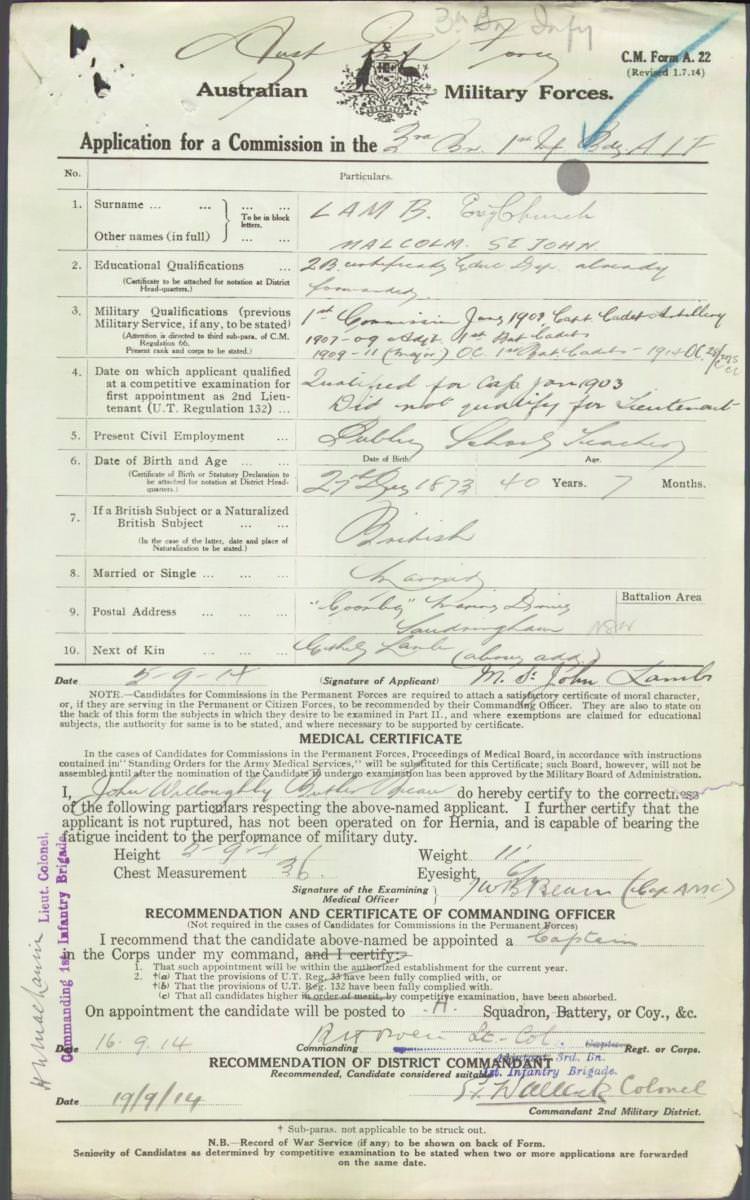 3rd Bn Infy
Aust Imp Force
C.M. Form A. 22
(Revised 1.7.14)
Australian Military Forces.
Application for a Commission in the 3rd Bn. 1st Inf Bde A I F
No. Particulars.
1. Surname ... ... To be in block letters. LAMB. Eng Church
Other names (in full) ... ... MALCOLM. ST JOHN.
2. Educational Qualifications ... 2B certificate Educ Dep. already
(Certificate to be attached for notation at District Head-quarters.) forwarded
3. Military Qualifications (previous Military Service, if any, to be stated) 1st Commission 1902 Capt Cadet Artillery
(Attention is directed to third sub-para. of C.M. Regulation 66. 1907-09 Adjt. 1st Bat Cadets
Present rank and corps to be stated.) 1909-11 (Major) OC. 1st Bat Cadets - 1914 OC.
4. Date on which applicant qualified at a competitive examination for first appointment as 2nd Lieutenant (U.T. Regulation 132) ... Qualified for Cap Jan 1903
Did not qualify for Lieutenant
5. Present Civil Employment ... Public School Teacher
6. Date of Birth and Age ... ... Date of Birth Age.
(Certificate of Birth or Statutory Declaration to be attached for notation at District Head-quarters.) 1873 40 Years. 7 Months.
7. If a British Subject or a Naturalized British Subject ... ... British
(In the case of the latter, date and place of Naturalization to be stated.)
8. Married or Single ... ... ... Married
Battalion Area
9. Postal Address ... ... ...
Sandringham NSW
10. Next of Kin ... ... ... Lamb (above add.)
Date 5-9-14 (Signature of Applicant) M. St John Lamb
NOTE.—Candidates for Commissions in the Permanent Forces are required to attach a satisfactory certificate of moral character,
or, if they are serving in the Permanent or Citizen Forces, to be recommended by their Commanding Officer. They are also to state on
the back of this form the subjects in which they desire to be examined in Part II., and where exemptions are claimed for educational
subjects, the authority for same is to be stated, and where necessary to be supported by certificate.
MEDICAL CERTIFICATE
In the cases of Candidates for Commissions in the Permanent Forces, Proceedings of Medical Board, in accordance with instructions
contained in "Standing Orders for the Army Medical Services," will be substituted for this Certificate; such Board, however, will not be
assembled until after the nomination of the Candidate to undergo examination has been approved by the Military Board of Administration.
I, John Willoughby Butler Bean do hereby certify to the correctness
of the following particulars respecting the above-named applicant. I further certify that the
applicant is not ruptured, has not been operated on for Hernia, and is capable of bearing the
fatigue incident to the performance of military duty.
Height Weight 11
Chest Measurement 36. Eyesight 6/
Signature of the Examining Medical Officer JWB Bean (Cap. AMC)
RECOMMENDATION AND CERTIFICATE OF COMMANDING OFFICER
(Not required in the cases of Candidates for Commissions in the Permanent Forces)
I recommend that the candidate above-named be appointed a Captain
in the Corps under my command, and I certify:-
1. That such appointment will be within the authorized establishment for the current year.
2. †(a) That the provisions of U.T. Reg. 33 have been fully complied with, or
†(b) That the provisions of U.T. Reg. 132 have been fully complied with.
(c) That all candidates higher in order of merit, by competitive examination, have been absorbed.
On appointment the candidate will be posted to H. Squadron, Battery, or Coy., &c.
Date 16.9.14 R H Owen Lt-Col. Commanding Regt. or Corps.
Adjutant 3rd. Bn.
1st. Infantry Brigade.
RECOMMENDATION OF DISTRICT COMMANDANT
Recommended, Candidate considered suitable
Date 19/9/14 Wallack Colonel
Commandant 2nd Military District.
† Sub-paras. not applicable to be struck out.
N.B.—Record of War Service (if any) to be shown on back of Form.
Seniority of Candidates as determined by competitive examination to be stated when two or more applications are forwarded
on the same date.
H N MacLaurin Lieut. Colonel,
Commanding 1st. Infantry Brigade.